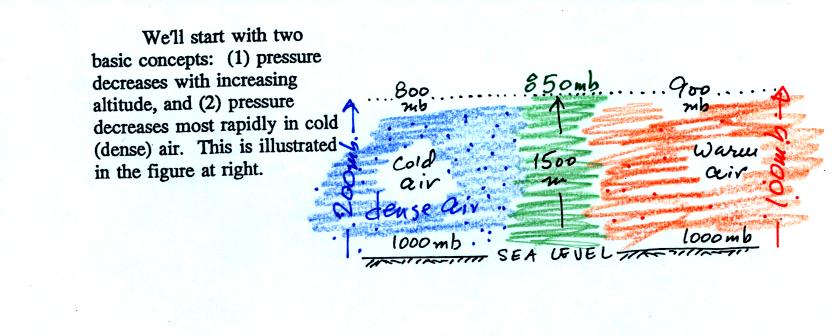 We'll start with two
basic concepts: (1) pressure
decreases with increasing
altitude, and (2) pressure
decreases most rapidly in cold
(dense) air. This is illustrated
in the figure at right.
800 mb
850mb
900 mb
200mb.
Cold air
dense air
1500 m
Warm air
100mb.
1000mb
SEA LEVEL
1000mb